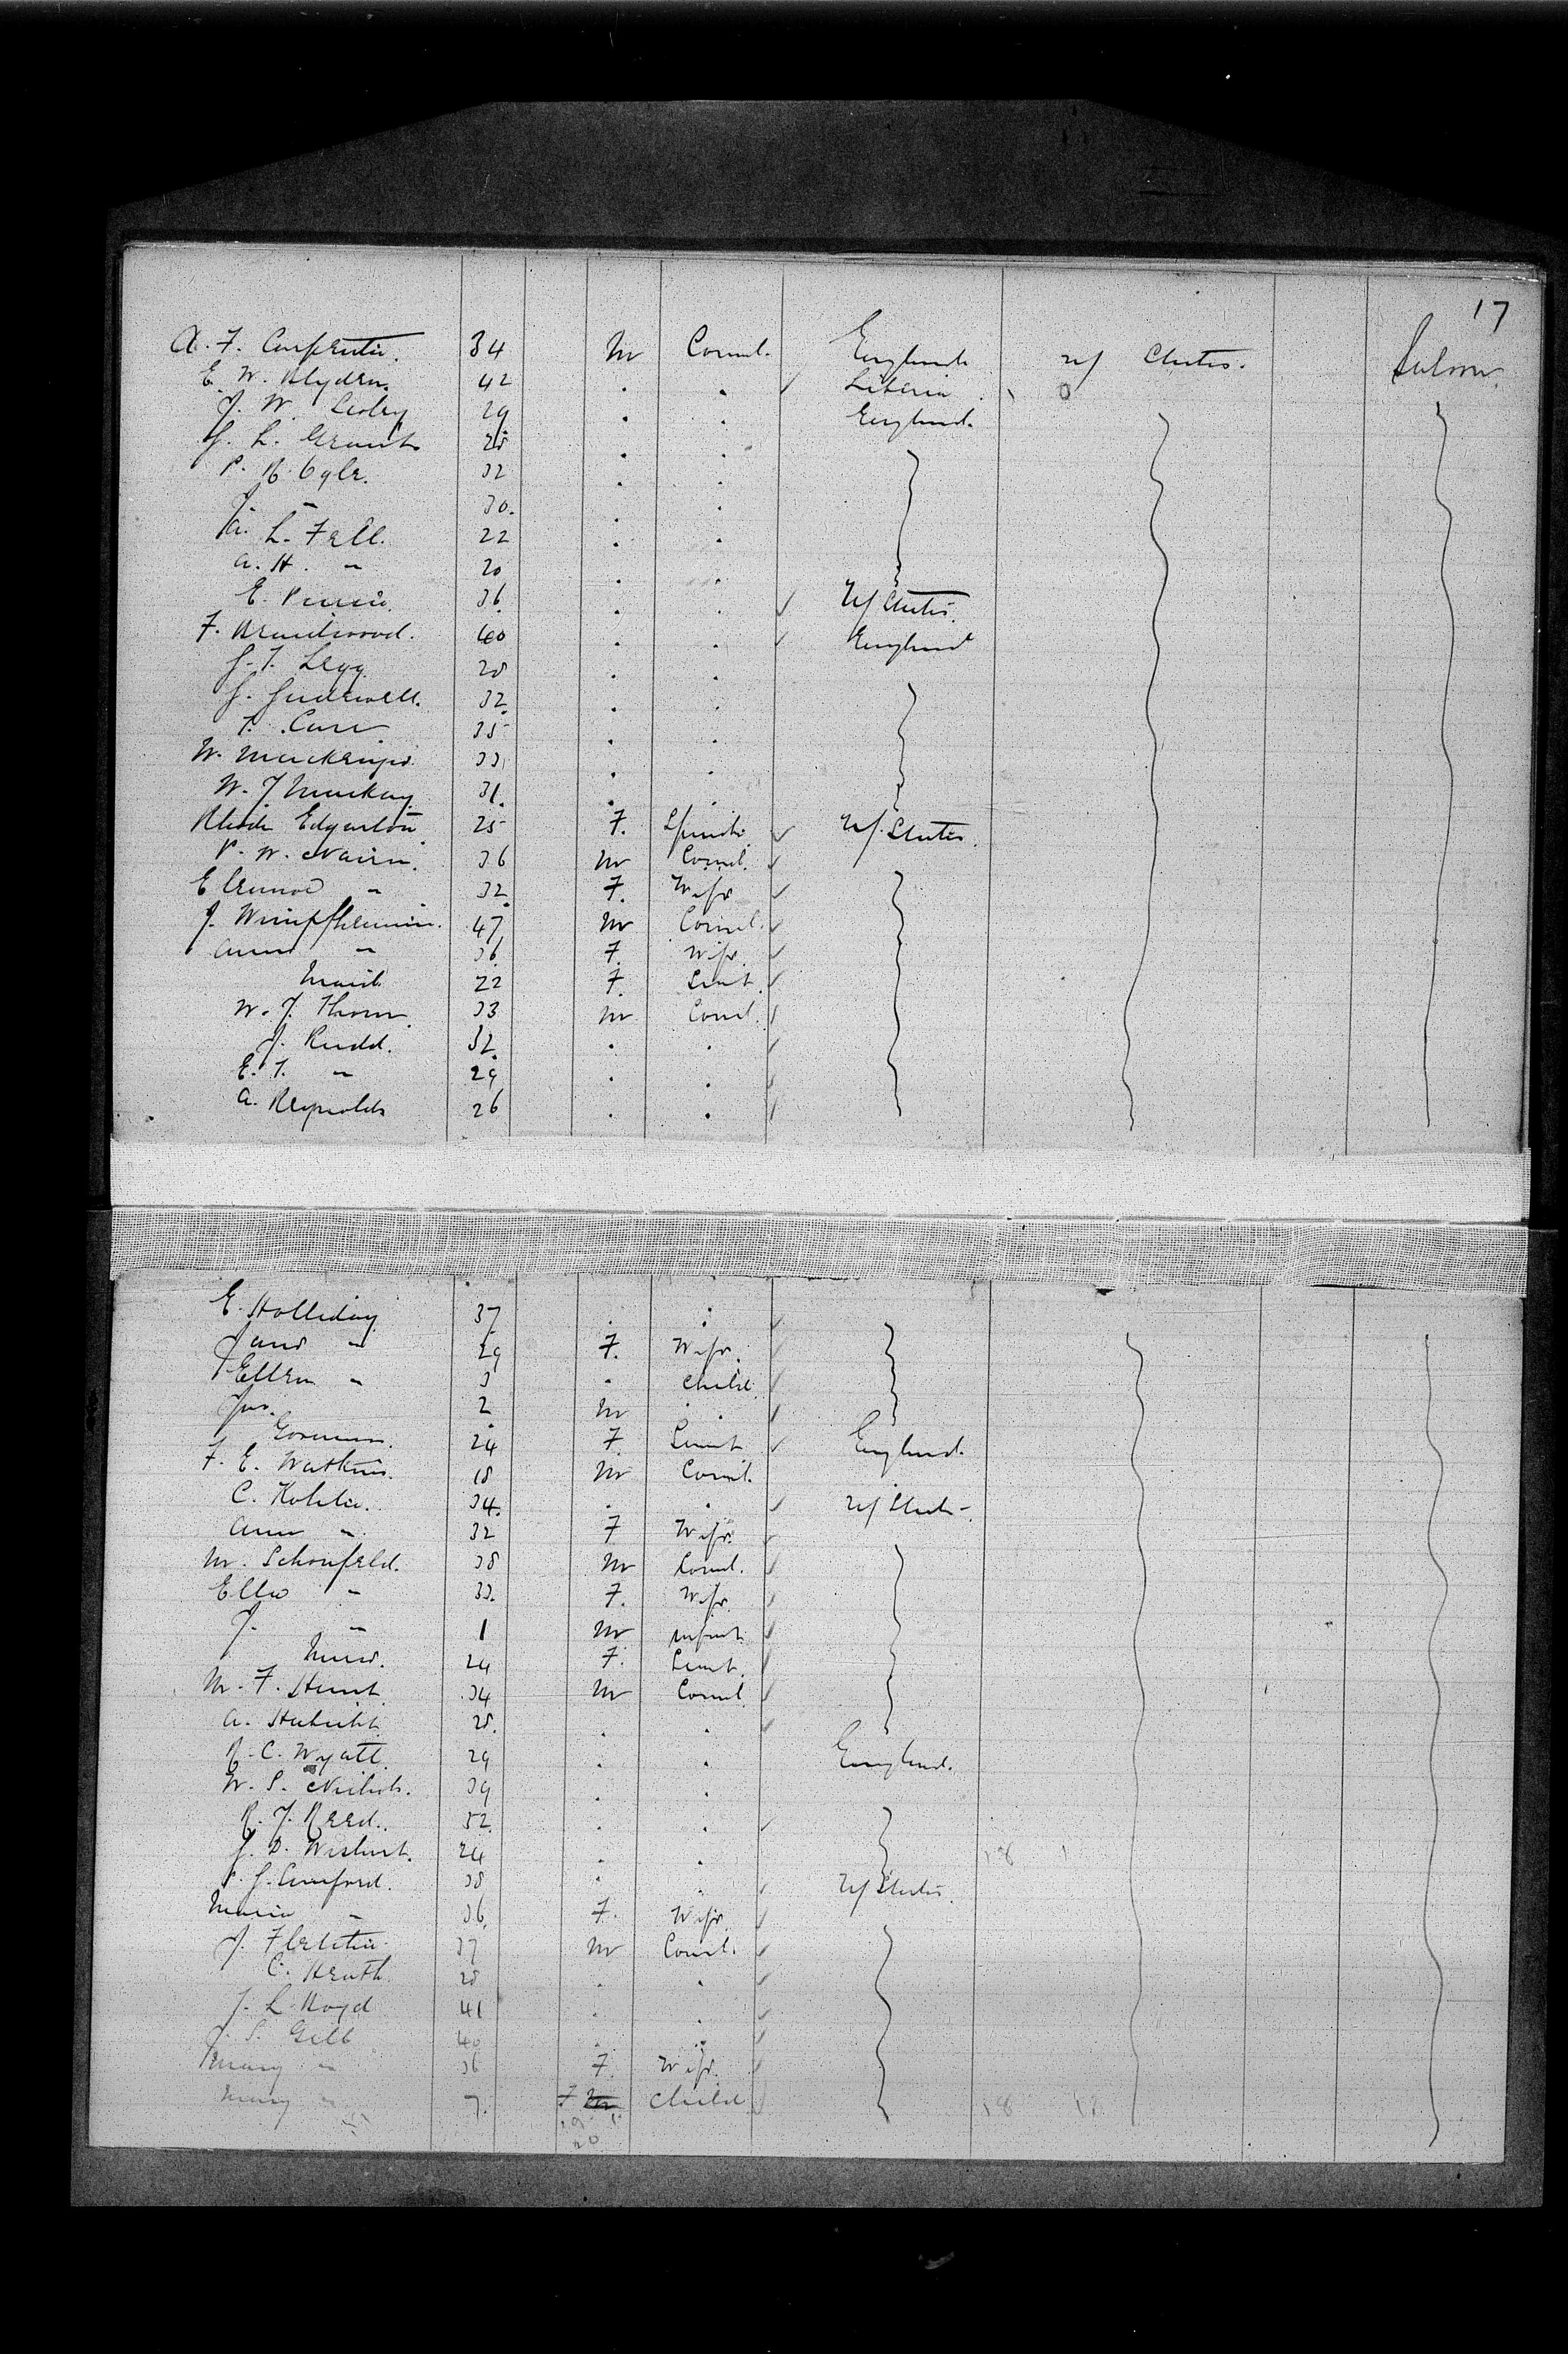 17
A. F. Carpenter. 34 M Coml. England U/ States. Saloon.
E. W. Blyden. 42 . . Liberia
J. W. Serley 29 . . England.
G. L. Grant 28 . .
P. B. Ogle. 32 . .
J. " 30. . .
A. L. Fell. 22 . .
A. H. " 20 . .
E. 36. . . U/ States.
F. Brentwood. 40 . . England
G. T. Legg 28 . .
G. 32. . .
T. Carr 35 . .
W. Mackenzie. 33 . .
W. J. Mackay 31. . .
Rhoda Edgarton 25 F. Spinster U/ States.
P. W. Nairn. 36 M Coml.
Eleanor " 32. F. Wife
J. Wimpfheimer. 47 M Coml.
Anna " 36. F. Wife.
Maid 22 F. Servt.
W. J. Thom 33 M Coml.
J. Rudd. 32. . .
E. T. " 29 . .
A. Reynolds 26 . .
E. Holliday 37 . .
Jane " 29 F. Wife.
Ellen " 3 " Child
Jas. 2 M .
Governess. 24 F. Servt. England.
F. E. Watkins. 18 M Coml.
C. Kohler. 34. . . U/ States.
Anna " 32 F Wife.
M. Schonfeld. 38 M Coml.
Ella " 33. F. Wife.
J. " 1 M Infant
Nurse. 24 F. Servt.
M. F. Hunt 34 M Coml.
A. Habicht 28. . .
R. C. Wyatt. 29 . . England.
W. S. Nichols. 39 . .
R. J. Reed. 52. . .
J. D. Wishart. 24 . .
P. G. Sanford. 38 . . U/ States.
Maria " 36. F. Wife
J. Fletcher 37 M Coml.
C. Heath 28 . .
J. L. Boyd 41 . .
J. S. Gill 40 . .
Mary " 36 F. Wife.
Mary " 7. F Child